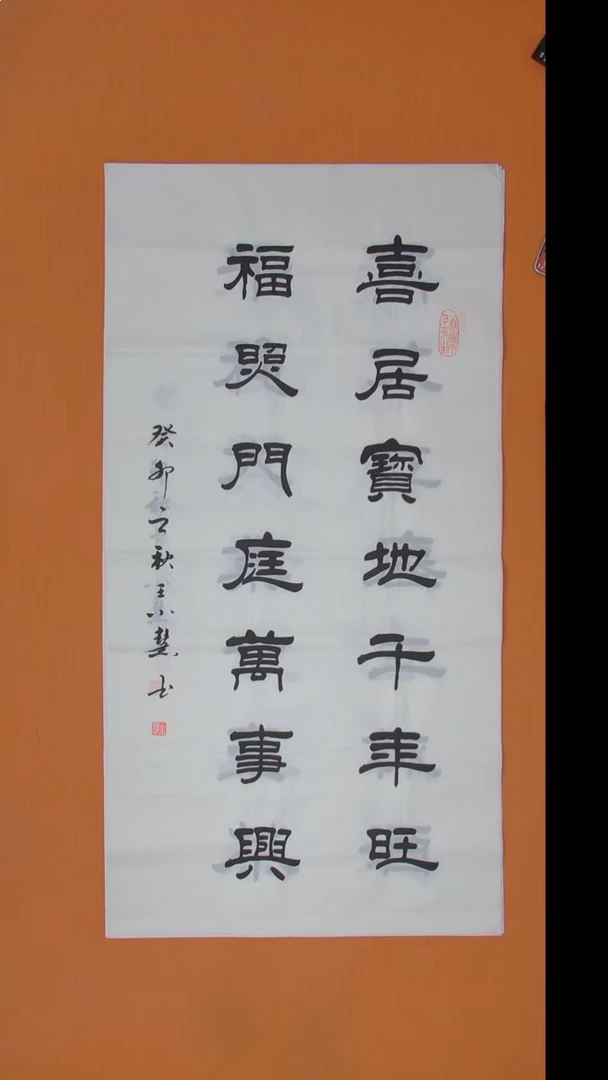 喜居寶地千年旺
福照門庭萬事興
癸卯之秋王小慧書